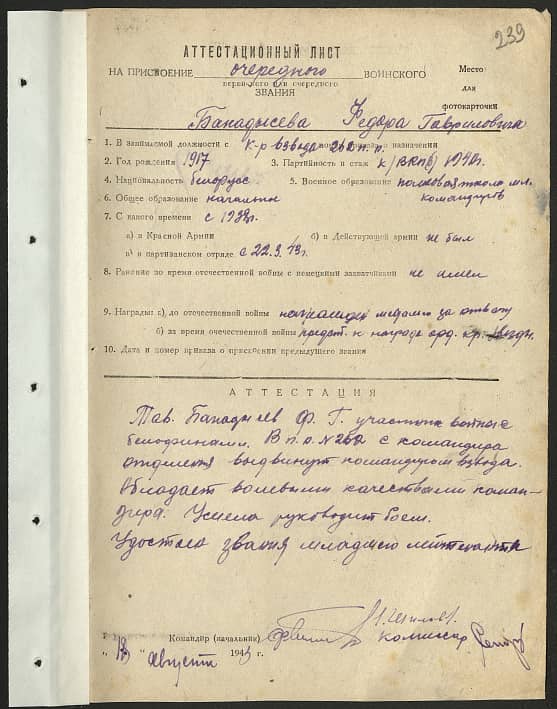 239
АТТЕСТАЦИОННЫЙ ЛИСТ
НА ПРИСВОЕНИЕ очередного ВОИНСКОГО
первичного или очередного
ЗВАНИЯ
Место
для
фотокарточки
Банадысева Федора Гавриловича
1. В занимаемой должности с к-р взвода 262 п.о. назначении
2. Год рождения 1917 3. Партийность и стаж к/ВКПб/ 1940г.
4. Национальность белорус 5. Военное образование полковая школа мл.
6. Общее образование начальн командиров
7. С какого времени с 1938г.
а) в Красной Армии б) в Действующей армии не был
в) в партизанском отряде с 22.3.43г.
8. Ранение во время отечественной войны с немецкими захватчиками не имел
9. Награды: а) до отечественной войны медалью за отвагу
б) за время отечественной войны предст. к награде орд. кр. звезды
10. Дата и номер приказа о присвоении предыдущего звания
АТТЕСТАЦИЯ
Тов. Банадысев Ф. Г. участник войны с
белофинами. В п.о. № 262 с командира
отделения выдвинут командиром взвода.
Обладает волевыми качествами коман-
дира. Умело руководит боем.
Удостоен звания младшего лейтенанта
Командир (начальник)
комиссар
" 18 " августа 1943 г.